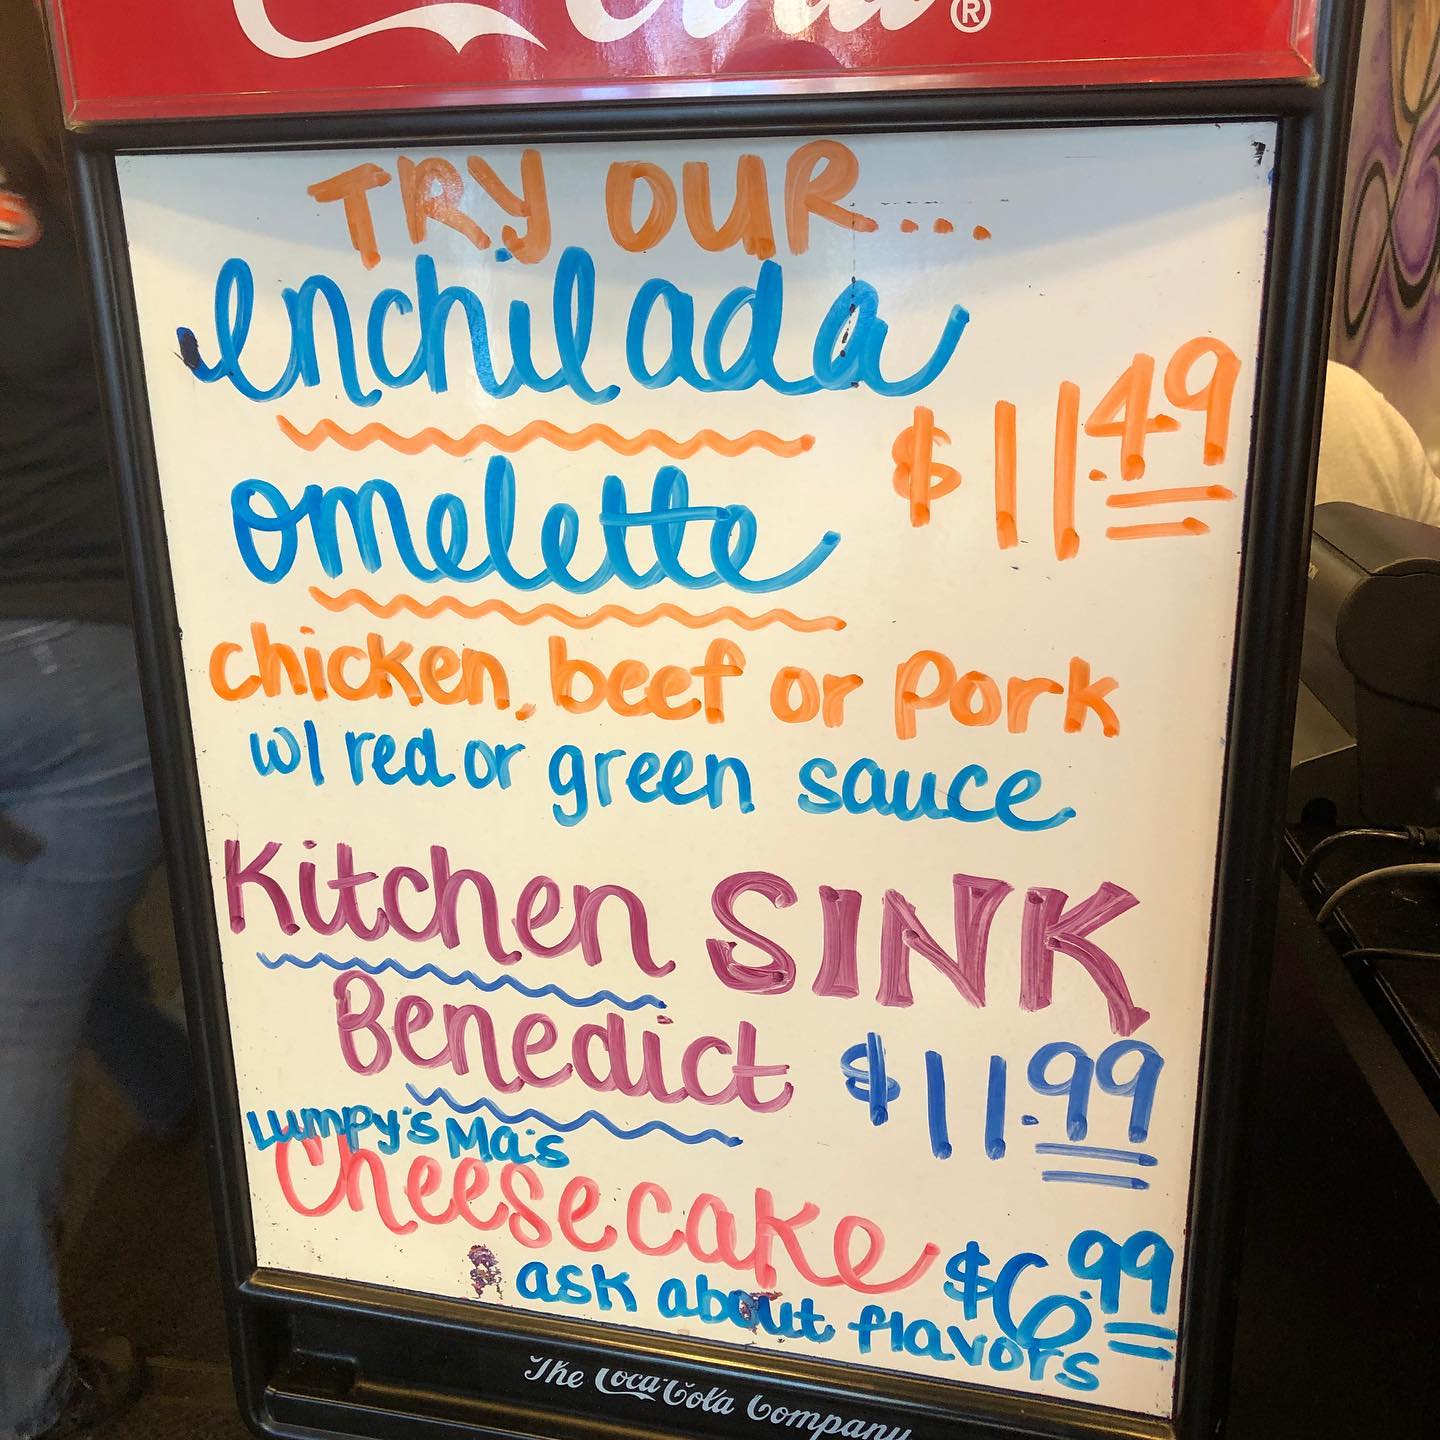 Cola®
TRY OUR...
enchilada
$11.49
omelette
chicken, beef or pork
w/ red or green sauce
Kitchen SINK
Benedict $11.99
Lumpy's Ma's
Cheesecake $6.99
ask about flavors
The Coca-Cola Company